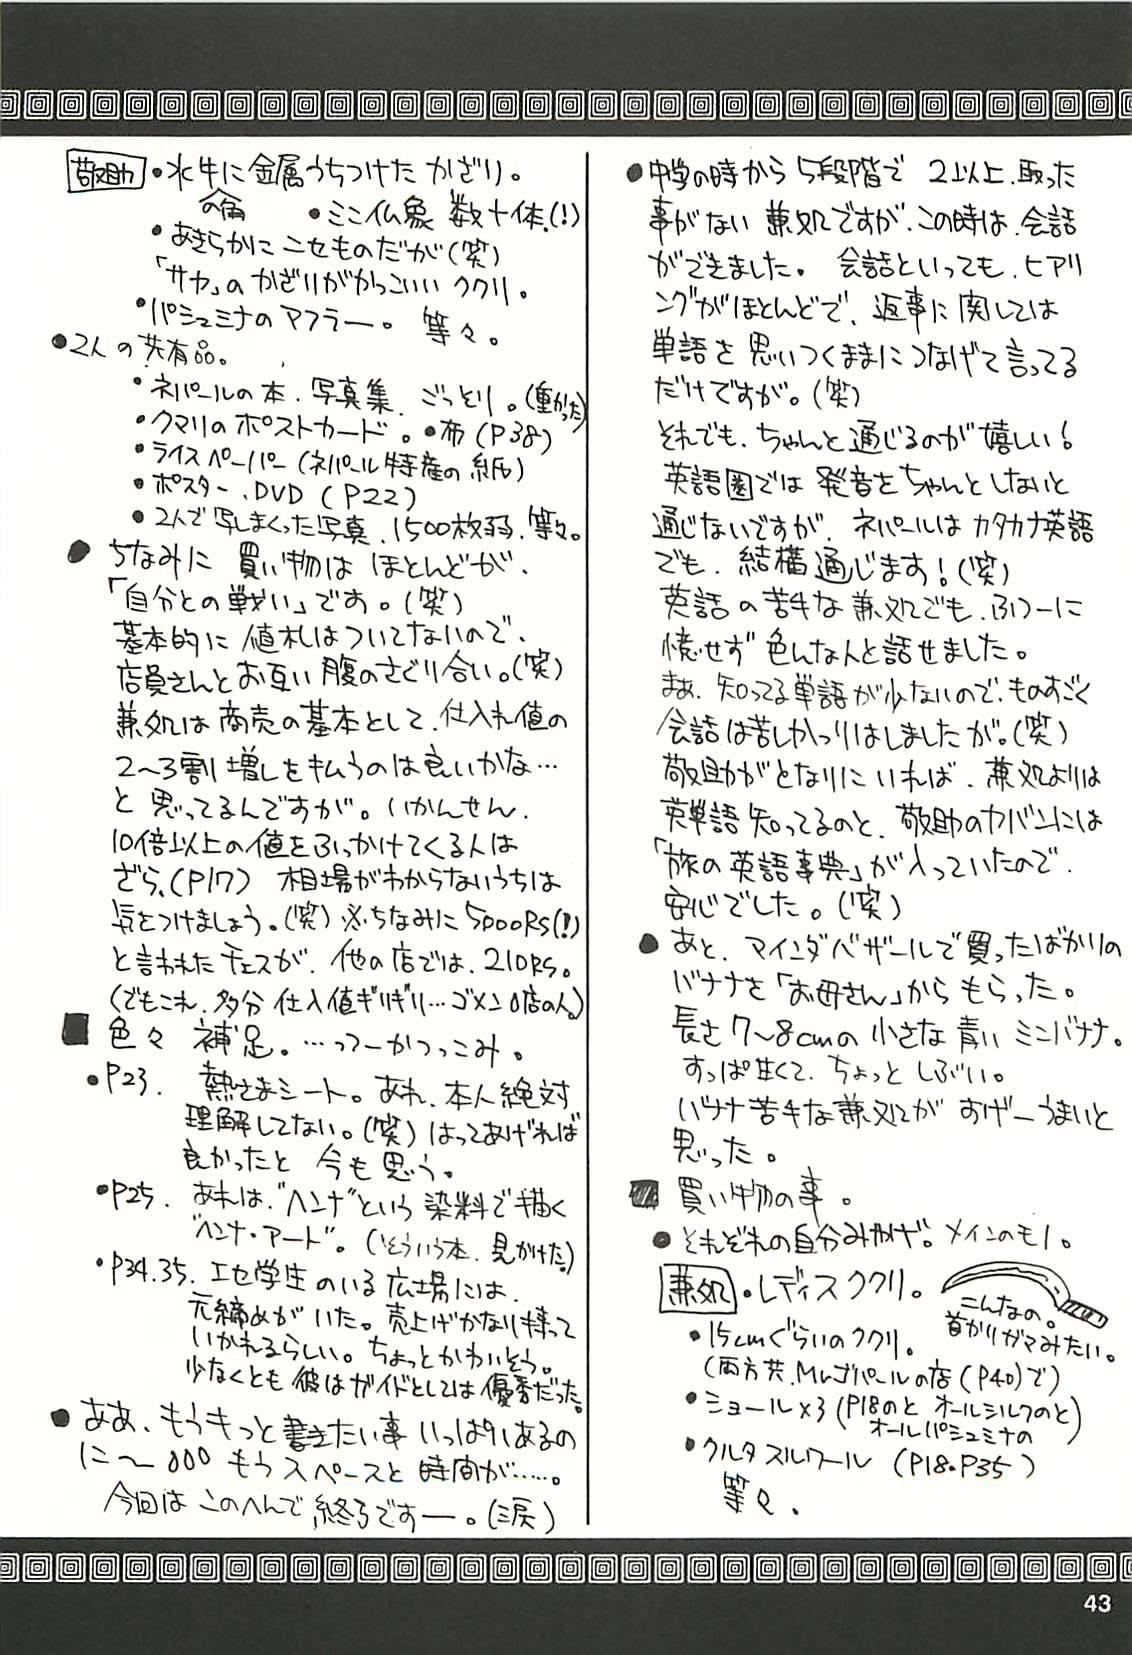 ●中学の時から5段階で 2以上、取った
事がない 兼処ですが、この時は、会話
ができました。 会話といっても、ヒアリ
ングがほとんどで、返事に関しては
単語を思いつくままにつなげて言ってる
だけですが。(笑)
それでも、ちゃんと通じるのが嬉しい!
英語圏では 発音をちゃんとしないと
通じないですが、ネパールはカタカナ英語
でも、結構通じます!(笑)
英語の苦手な兼処でも、ふつーに
憶せず色んな人と話せました。
まあ、知ってる単語が少ないので、ものすごく
会話は苦しかったりはしましたが。(笑)
敬助がとなりにいれば、兼処よりは
英単語知ってるのと、敬助のカバンには
「旅の英語事典」が入っていたので、
安心でした。(笑)
●あと、マインダバザールで買ったばかりの
バナナを「お母さん」からもらった。
長さ7〜8cmの小さな青いミニバナナ。
すっぱ甘くて、ちょっとしぶい。
バナナ苦手な兼処が おげーうまいと
思った。
■ 買い物の事。
●それぞれの自分みやげ。メインのモノ。
兼処 ・レディスククリ。
こんなの。
首かりガマみたい。
・15cmぐらいのククリ。
(両方共、Mr.ゴパールの店(P40)で)
・ショール×3(P18のと オールシルクのと
オールパシュミナの)
・クルタスルワール (P18・P35)
等々。
敬助 ・水牛の角に金属うちつけたかざり。
・ミニ仏象 数十体、(!)
・あきらかにニセものだが(笑)
「サヤ」のかざりがかっこいいククリ。
・パシュミナのマフラー。 等々。
●2人の共有品。
・ネパールの本、写真集、ごっとり。(重かった)
・クマリのポストカード。・布(P38)
・ライスペーパー(ネパール特産の紙)
・ポスター、DVD (P22)
・2人で写しまくった写真、1500枚弱、等々。
●ちなみに 買い物は ほとんどが、
「自分との戦い」です。(笑)
基本的に 値札はついてないので、
店員さんとお互い腹のさぐり合い。(笑)
兼処は商売の基本として、仕入れ値の
2〜3割増しを払うのは良いかな…
と思ってるんですが。いかんせん、
10倍以上の値をふっかけてくる人は
ざら、(P17) 相場がわからないうちは
気をつけましょう。(笑)※ちなみに5000RS(!)
と言われたチェスが、他の店では、210RS。
(でもこれ、多分 仕入値ギリギリ…ゴメンよ店の人。)
■ 色々 補足。…ってーかつっこみ。
・P23. 熱さまシート。あれ、本人絶対
理解してない。(笑)はってあげれば
良かったと 今も思う。
・P25. あれは、"ヘンナ"という染料で描く
"ヘンナ・アート"。(そういう本、見かけた。)
・P34.35. エセ学生のいる広場には、
元締めがいた。売上げかなり持って
いかれるらしい。ちょっとかわいそう。
少なくとも彼はガイドとしては優秀だった。
●ああ、もうもっと書きたい事いっぱいあるの
に〜。。。もうスペースと時間が……。
今回はこのへんで終了ですー。(涙)
43